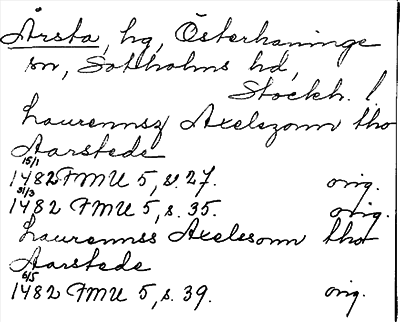 Årsta, hg, Österhaninge
sn, Sotholms hd,
Stockh. l.
Laurennsz Axelszonn tho
Aarstede
15/1
1482 FMU 5, s. 27. orig.
31/3
1482 FMU 5, s. 35. orig.
Laurennss Axelssonn tho
Aarstede
6/5
1482 FMU 5, s. 39. orig.